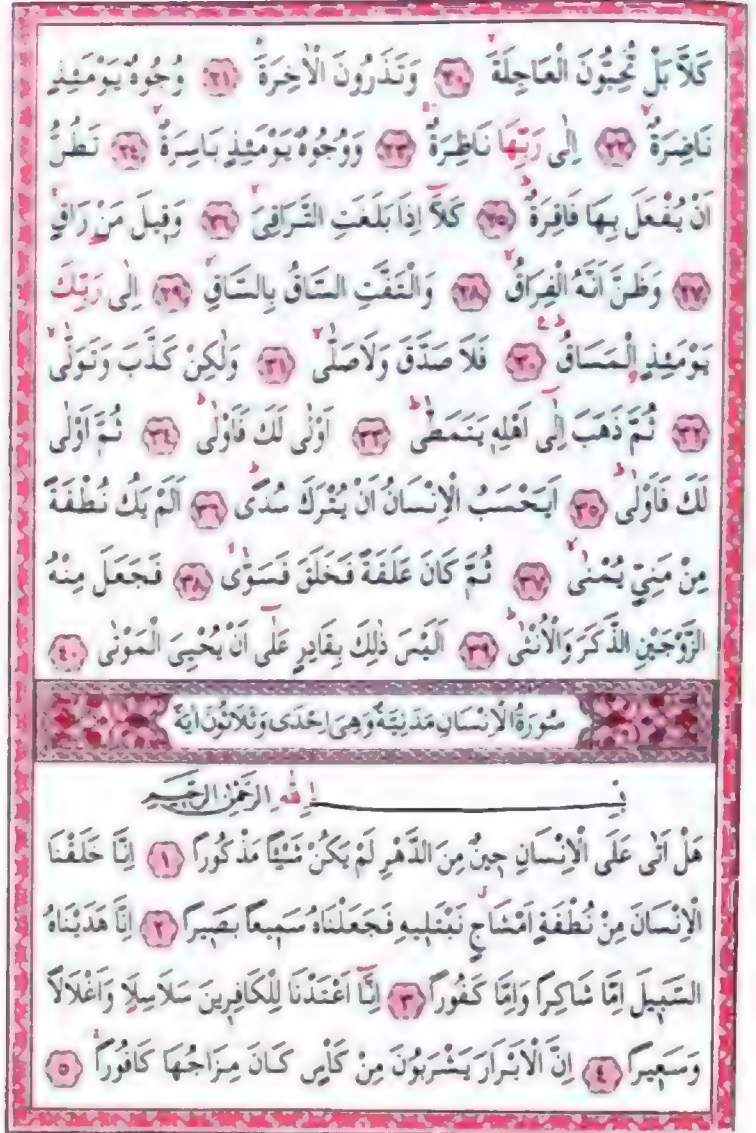 كَلَّا بَلْ تُحِبُّونَ الْعَاجِلَةَۙ ﴿٢٠﴾ وَتَذَرُونَ الْاٰخِرَةَۜ ﴿٢١﴾ وُجُوهٌ يَوْمَئِذٍ
نَاضِرَةٌۙ ﴿٢٢﴾ اِلٰى رَبِّهَا نَاظِرَةٌۚ ﴿٢٣﴾ وَوُجُوهٌ يَوْمَئِذٍ بَاسِرَةٌۙ ﴿٢٤﴾ تَظُنُّ
اَنْ يُفْعَلَ بِهَا فَاقِرَةٌۜ ﴿٢٥﴾ كَلَّٓا اِذَا بَلَغَتِ التَّرَاقِيَۙ ﴿٢٦﴾ وَقٖيلَ مَنْ رَاقٍۙ
﴿٢٧﴾ وَظَنَّ اَنَّهُ الْفِرَاقُۙ ﴿٢٨﴾ وَالْتَفَّتِ السَّاقُ بِالسَّاقِۙ ﴿٢٩﴾ اِلٰى رَبِّكَ
يَوْمَئِذٍ الْمَسَاقُۜ ﴿٣٠﴾ فَلَا صَدَّقَ وَلَا صَلّٰىۙ ﴿٣١﴾ وَلٰكِنْ كَذَّبَ وَتَوَلّٰىۙ
﴿٣٢﴾ ثُمَّ ذَهَبَ اِلٰٓى اَهْلِهٖ يَتَمَطّٰىۜ ﴿٣٣﴾ اَوْلٰى لَكَ فَاَوْلٰىۙ ﴿٣٤﴾ ثُمَّ اَوْلٰى
لَكَ فَاَوْلٰىۜ ﴿٣٥﴾ اَيَحْسَبُ الْاِنْسَانُ اَنْ يُتْرَكَ سُدًىۜ ﴿٣٦﴾ اَلَمْ يَكُ نُطْفَةً
مِنْ مَنِيٍّ يُمْنٰىۙ ﴿٣٧﴾ ثُمَّ كَانَ عَلَقَةً فَخَلَقَ فَسَوّٰىۙ ﴿٣٨﴾ فَجَعَلَ مِنْهُ
الزَّوْجَيْنِ الذَّكَرَ وَالْاُنْثٰىۜ ﴿٣٩﴾ اَلَيْسَ ذٰلِكَ بِقَادِرٍ عَلٰٓى اَنْ يُحْيِيَ الْمَوْتٰى ﴿٤٠﴾
سُورَةُ الْاِنْسَانِ مَدَنِيَّةٌ وَهِيَ اِحْدٰى وَثَلَاثُونَ اٰيَةً
بِسْمِ اللّٰهِ الرَّحْمٰنِ الرَّحٖيمِ
هَلْ اَتٰى عَلَى الْاِنْسَانِ حٖينٌ مِنَ الدَّهْرِ لَمْ يَكُنْ شَيْـًٔا مَذْكُورًا ﴿١﴾ اِنَّا خَلَقْنَا
الْاِنْسَانَ مِنْ نُطْفَةٍ اَمْشَاجٍۗ نَبْتَلٖيهِ فَجَعَلْنَاهُ سَمٖيعًا بَصٖيرًا ﴿٢﴾ اِنَّا هَدَيْنَاهُ
السَّبٖيلَ اِمَّا شَاكِرًا وَاِمَّا كَفُورًا ﴿٣﴾ اِنَّٓا اَعْتَدْنَا لِلْكَافِرٖينَ سَلَاسِلَا۬ وَاَغْلَالًا
وَسَعٖيرًا ﴿٤﴾ اِنَّ الْاَبْرَارَ يَشْرَبُونَ مِنْ كَأْسٍ كَانَ مِزَاجُهَا كَافُورًاۚ ﴿٥﴾